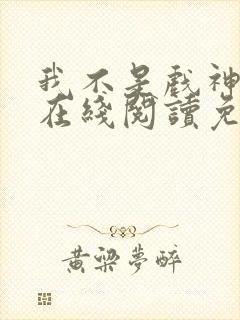 我不是戲神
在綫閱讀免
黄梁夢醉